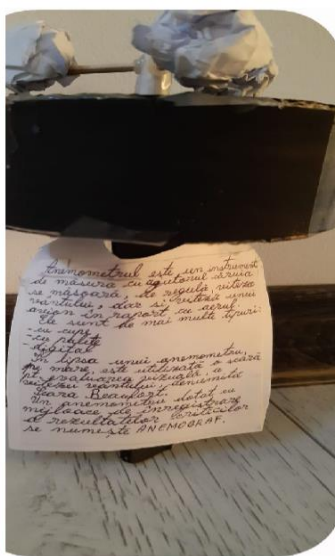 Anemometrul este un instrument
de măsură cu ajutorul căruia
se măsoară, de regulă, viteza
vântului, dar și viteza unui
avion în raport cu aerul.
Ele sunt de mai multe tipuri:
-cu cupe
-cu palete
-digital
În lipsa unui anemometru,
pe mare, este utilizată o scară
pt. evaluarea vizuală a
vitezei vântului, denumită
scara Beaufort.
Un anemometru dotat cu
mijloace de înregistrare
a rezultatelor citirilor
se numește ANEMOGRAF.